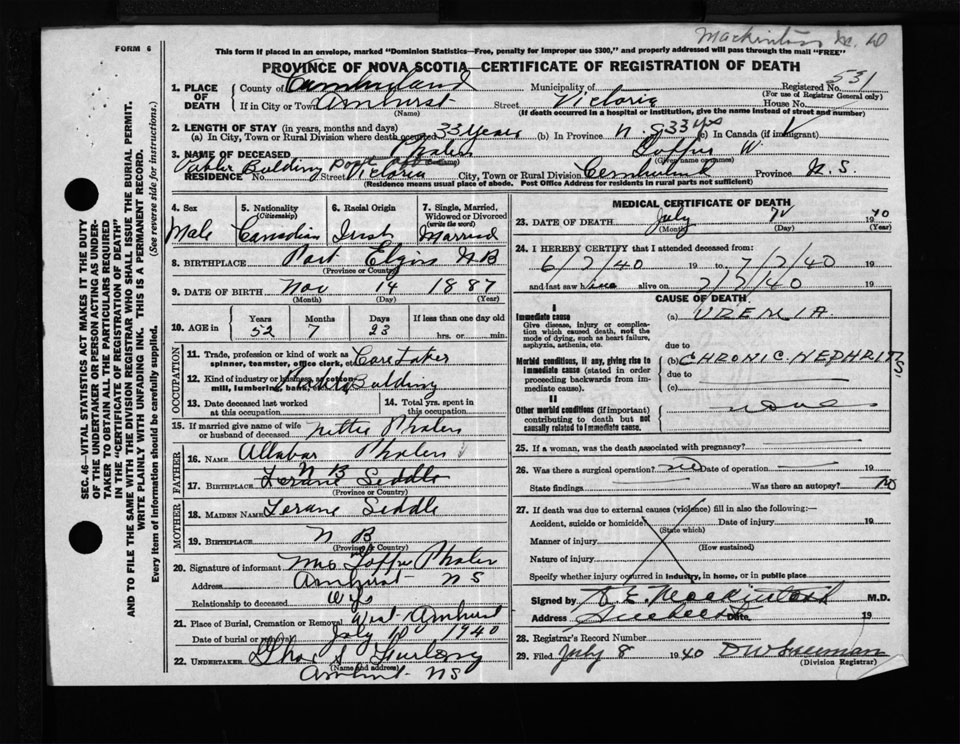 Mackintosh
FORM 6
This form if placed in an envelope, marked "Dominion Statistics—Free, penalty for improper use $300," and properly addressed will pass through the mail "FREE"
PROVINCE OF NOVA SCOTIA—CERTIFICATE OF REGISTRATION OF DEATH
1. PLACE OF DEATH
County of Cumberland Municipality of Registered No. 531
(For use of Registrar General only)
If in City or Town Amherst Street Victoria House No.
(Name) (If death occurred in a hospital or institution, give the name instead of street and number)
2. LENGTH OF STAY (in years, months and days)
(a) In City, Town or Rural Division where death occurred 33 Years (b) In Province N.S 33 yrs (c) In Canada (if immigrant)
3. NAME OF DECEASED Phalen W.
(Given name or names)
RESIDENCE No. Public Bulding Post Office Street Victoria City, Town or Rural Division Province N.S.
(Residence means usual place of abode. Post Office Address for residents in rural parts not sufficient)
4. Sex 5. Nationality (Citizenship) 6. Racial Origin 7. Single, Married, Widowed or Divorced (write the word)
Male Canadian Irish Married
8. BIRTHPLACE Port Elgin N B
(Province or Country)
9. DATE OF BIRTH Nov 14 1887
(Month) (Day) (Year)
10. AGE in Years Months Days If less than one day old
52 7 23 hrs. or min.
OCCUPATION
11. Trade, profession or kind of work as spinner, teamster, office clerk, etc. Care taker
12. Kind of industry or business, as cotton mill, lumbering, bank, Public Bulding
13. Date deceased last worked at this occupation
14. Total yrs. spent in this occupation
15. If married give name of wife or husband of deceased Nettie Phalen
FATHER
16. NAME Phalen
17. BIRTHPLACE N B
(Province or Country)
MOTHER
18. MAIDEN NAME Siddle
19. BIRTHPLACE N B
(Province or Country)
20. Signature of informant Mrs Phalen
Address Amherst N S
Relationship to deceased Wife
21. Place of Burial, Cremation or Removal West Amherst
Date of burial or removal July 10 1940
22. UNDERTAKER S Furlong
(Name and address)
Amherst N S
MEDICAL CERTIFICATE OF DEATH
23. DATE OF DEATH July 7 1940
(Month) (Day) (Year)
24. I HEREBY CERTIFY that I attended deceased from:
6/7/40 19 to 7/7/40 19
and last saw him alive on 7/7/40 19
CAUSE OF DEATH
I
Immediate cause (a) UREMIA.
Give disease, injury or complication which caused death, not the mode of dying, such as heart failure, asphyxia, asthenia, etc.
due to
Morbid conditions, if any, giving rise to immediate cause (stated in order proceeding backwards from immediate cause). (b) CHRONIC NEPHRITIS
due to
(c)
II
Other morbid conditions (if important) contributing to death but not causally related to immediate cause. none
25. If a woman, was the death associated with pregnancy?
26. Was there a surgical operation? no Date of operation 19
State findings Was there an autopsy? No
27. If death was due to external causes (violence) fill in also the following:—
Accident, suicide or homicide Date of injury 19
(State which)
Manner of injury
(How sustained)
Nature of injury
Specify whether injury occurred in industry, in home, or in public place
Signed by E. Mackintosh M.D.
Address Amherst Date 19
28. Registrar's Record Number
29. Filed July 8 1940
(Division Registrar)
SEC. 46—VITAL STATISTICS ACT MAKES IT THE DUTY OF THE UNDERTAKER OR PERSON ACTING AS UNDERTAKER TO OBTAIN ALL THE PARTICULARS REQUIRED IN THE "CERTIFICATE OF REGISTRATION OF DEATH" AND TO FILE THE SAME WITH THE DIVISION REGISTRAR WHO SHALL ISSUE THE BURIAL PERMIT.
WRITE PLAINLY WITH UNFADING INK. THIS IS A PERMANENT RECORD.
Every item of information should be carefully supplied. (See reverse side for instructions.)